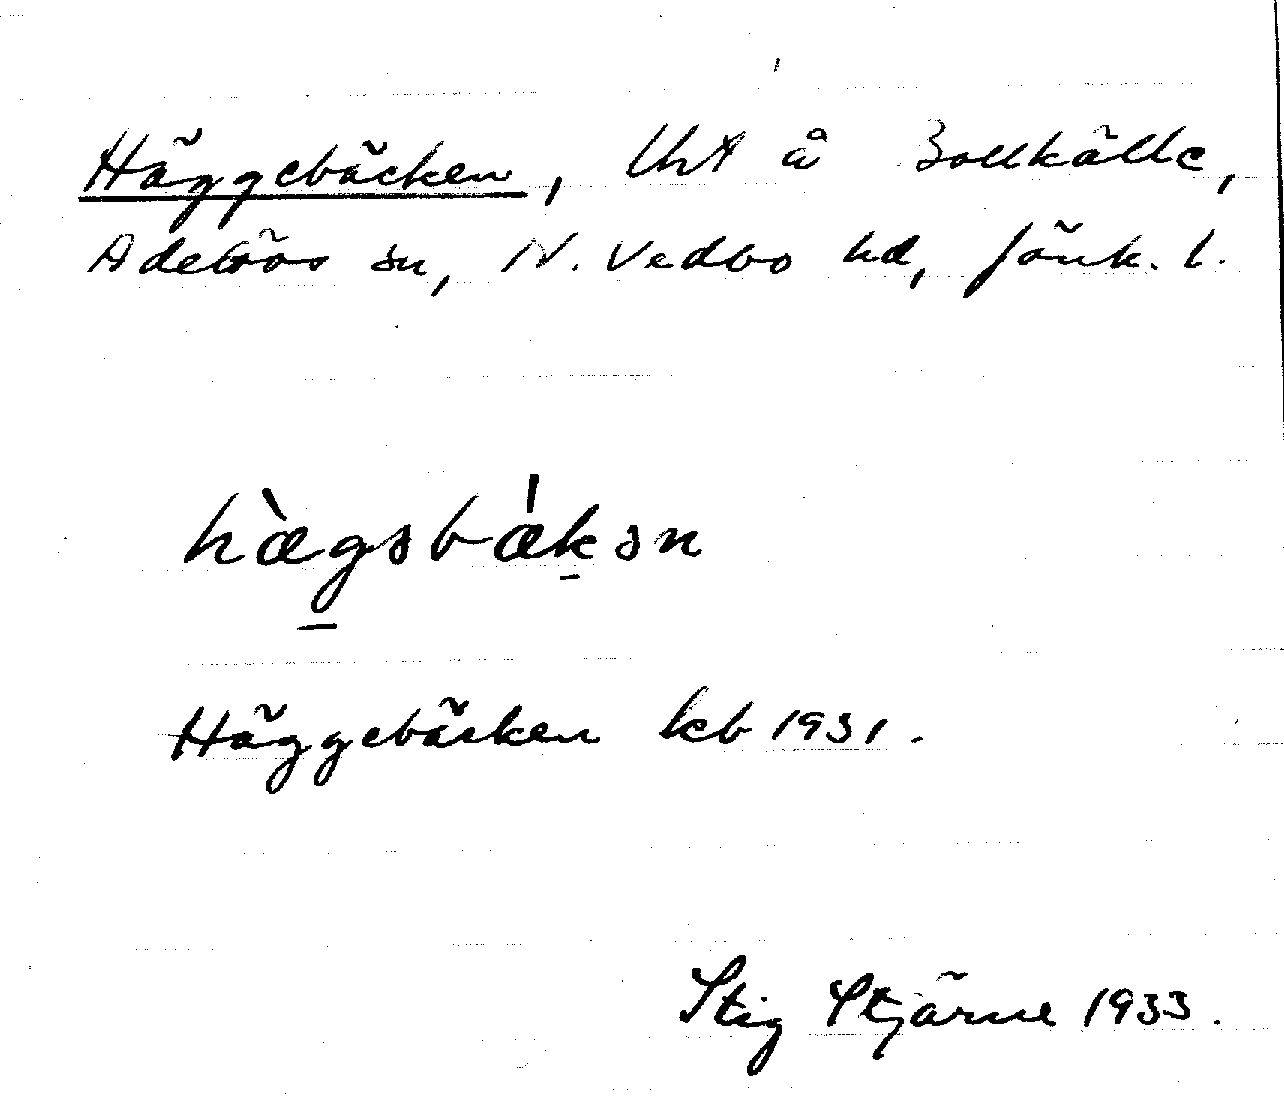 Häggebäcken, lht å Bollkälle,
Adelövs sn, N. Vedbo hd, Jönk. l.
hæ̀gəbǽkən
Häggebäcken kb 1931.
Stig Stjärne 1933.